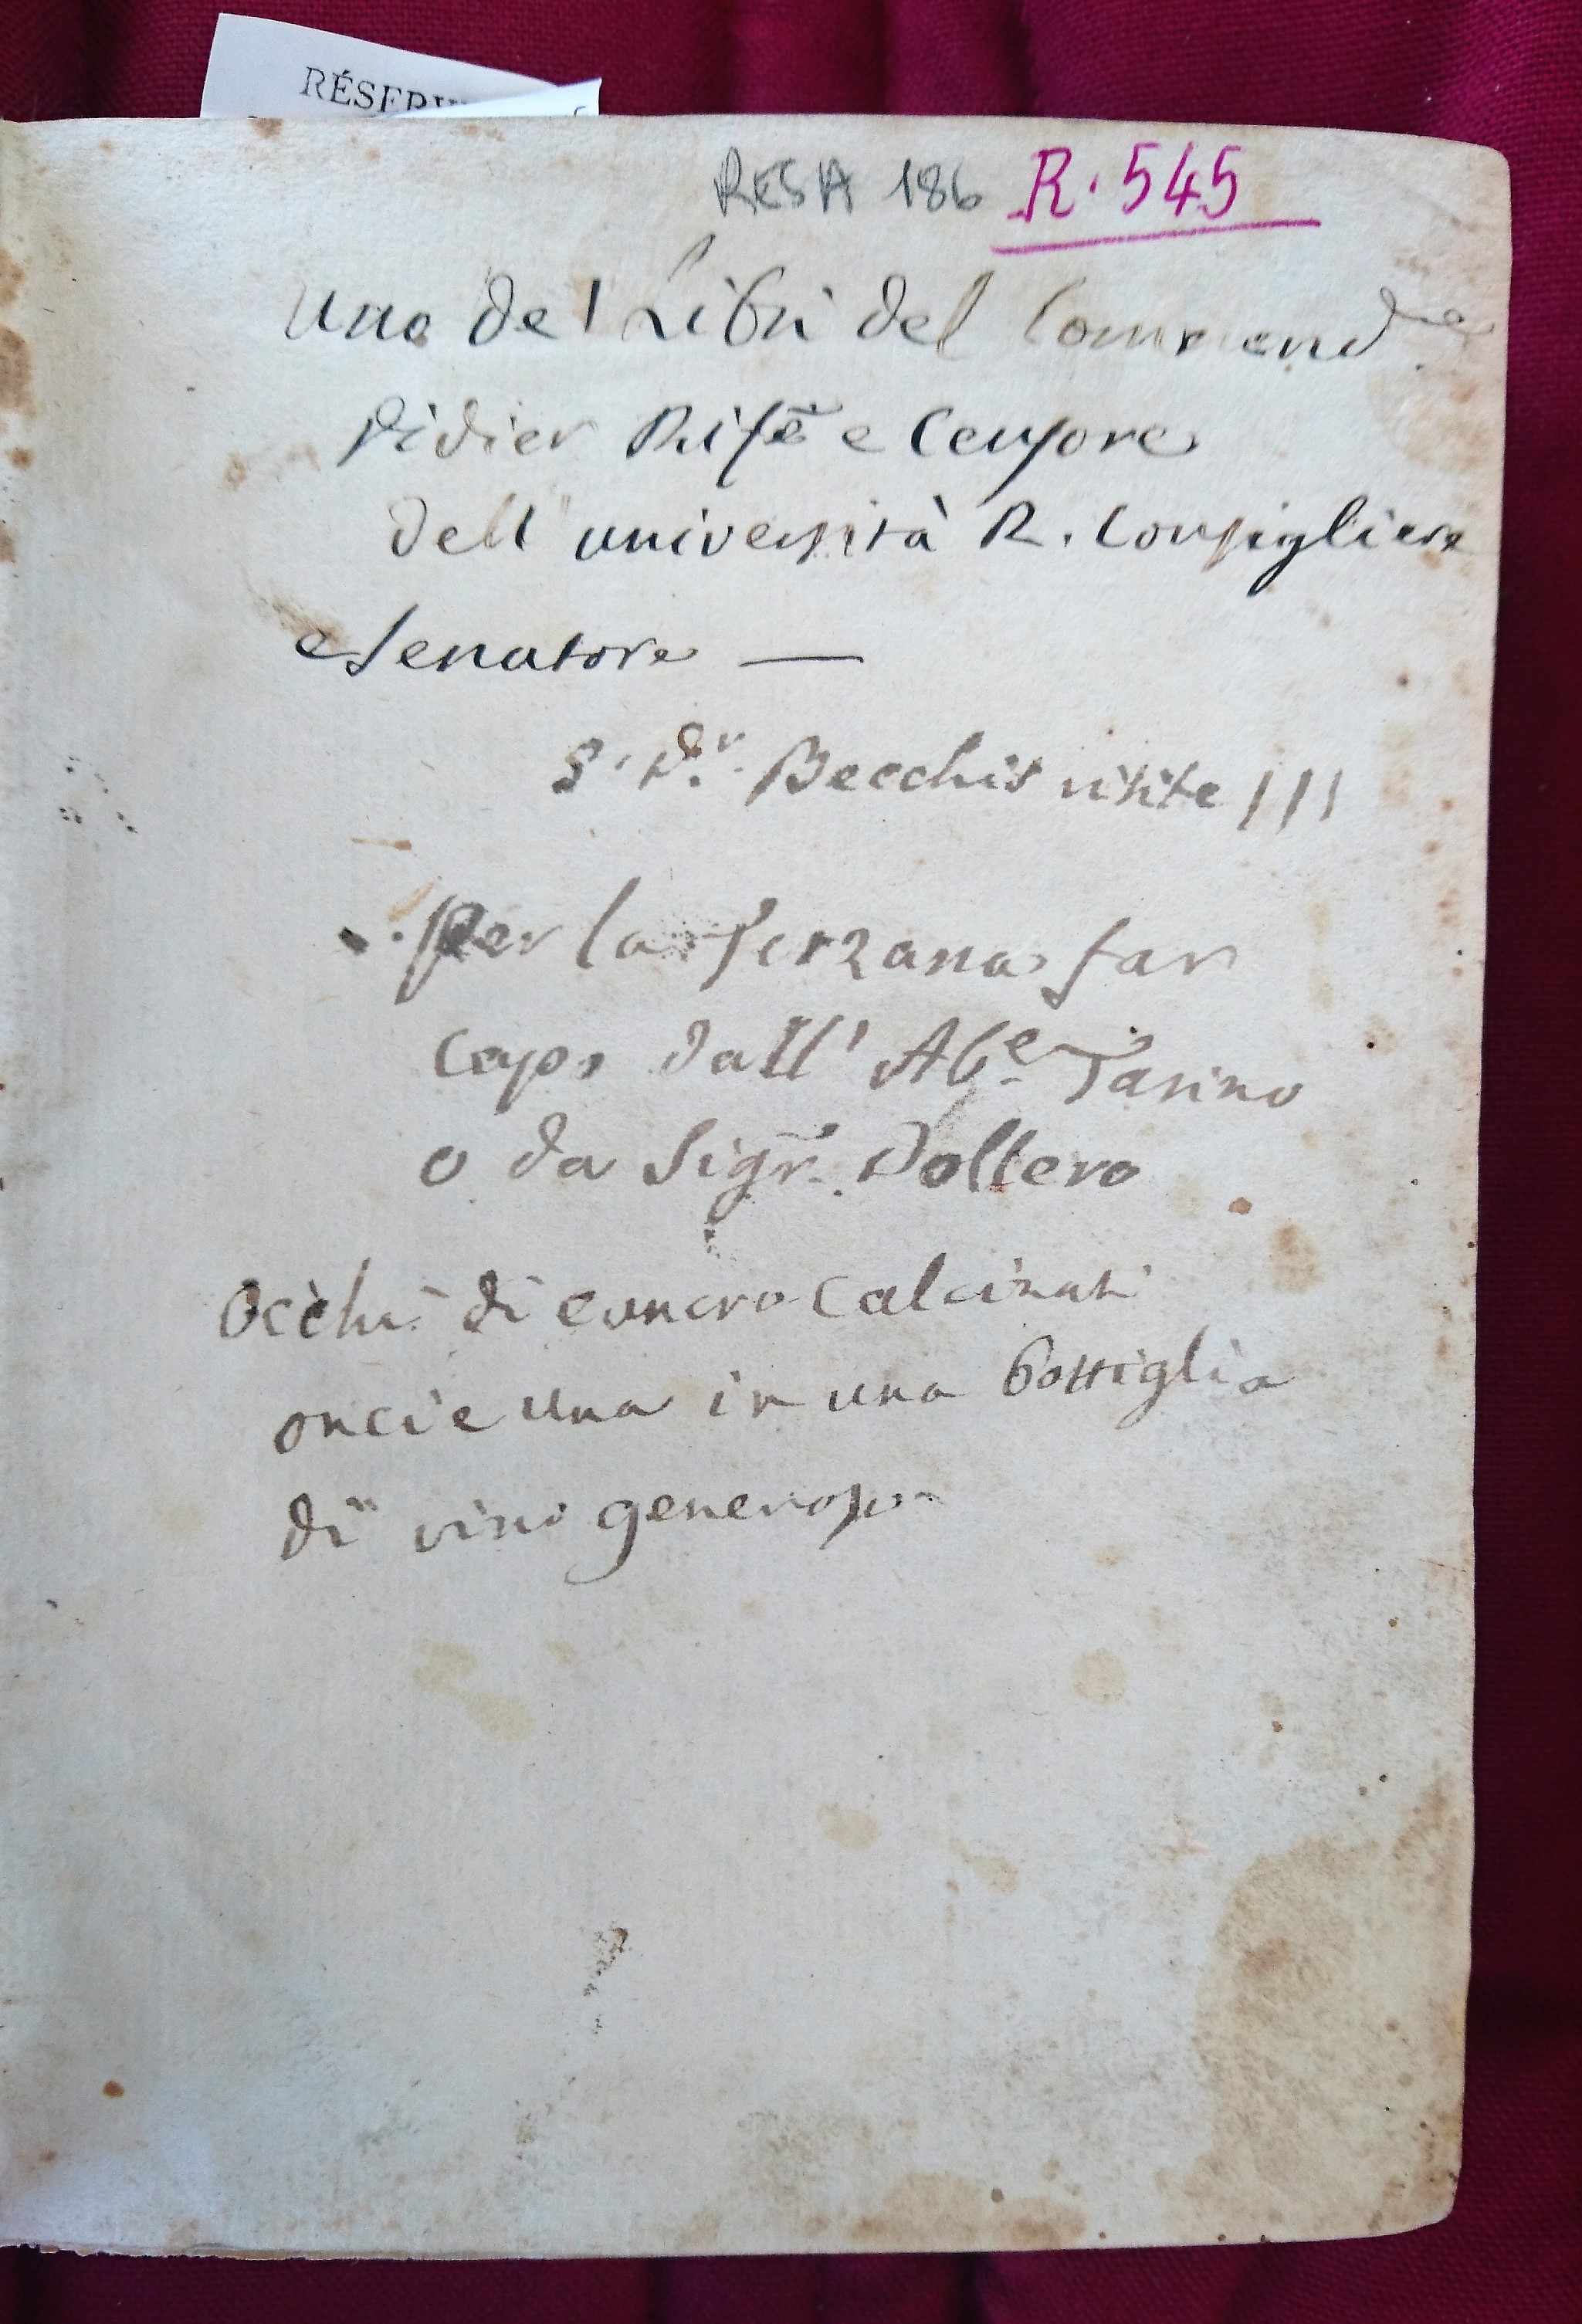 RÉSERV
RESA 186 R. 545
Uno de' Libri del Commendre
Didier Rife e Censore
dell'università R. Consigliere
e Senatore —
S. Dr. Becchis visite | | |
Per la Terzana far
capo dall' Abe Tarino
o da Sigr. Voltero
Occhi di cancro calcinati
oncie una in una bottiglia
di vino generoso